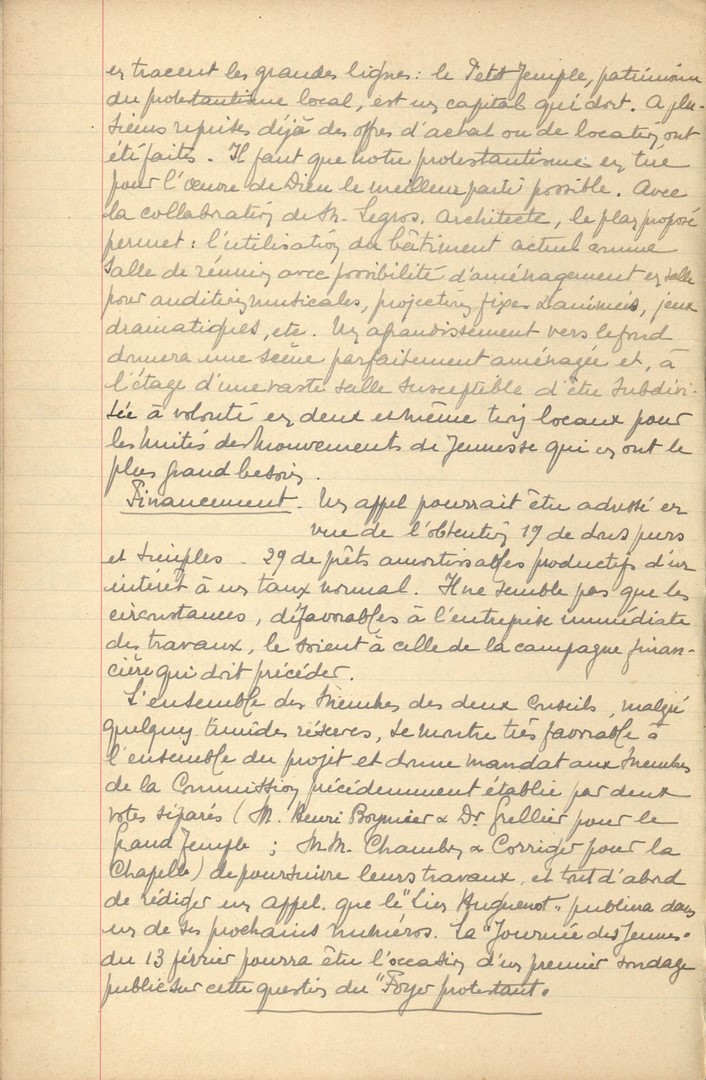 en tracent les grandes lignes : le Petit Temple, patrimoine
du protestantisme local, est un capital qui dort. A plu-
sieurs reprises déjà des offres d'achat ou de location ont
été faites. Il faut que notre protestantisme en tire
pour l'œuvre de Dieu le meilleur parti possible. Avec
la collaboration de M. Legros, architecte, le plan proposé
permet : l'utilisation du bâtiment actuel comme
salle de réunion avec possibilité d'aménagement en salle
pour auditions musicales, projections fixes & animées, jeux
dramatiques, etc. Un agrandissement vers le fond
donnera une scène parfaitement aménagée et, à
l'étage d'une vaste salle susceptible d'être subdivi-
sée à volonté en deux et même trois locaux pour
les Unités des Mouvements de Jeunesse qui en ont le
plus grand besoin.
Financement. Un appel pourrait être adressé en
vue de l'obtention 1º de dons purs
et simples - 2º de prêts amortissables productifs d'un
intérêt à un taux normal. Il ne semble pas que les
circonstances, défavorables à l'entreprise immédiate
des travaux, le soient à celle de la campagne finan-
cière qui doit précéder.
L'ensemble des Membres des deux Conseils, malgré
quelques timides réserves, se montre très favorable à
l'ensemble du projet et donne mandat aux Membres
de la Commission précédemment établie par deux
votes séparés (M. Henri Boynier & Dr Grellier pour le
Grand Temple ; MM. Chambon & Corriger pour la
Chapelle) de poursuivre leurs travaux, et tout d'abord
de rédiger un appel que le "Lien Huguenot" publiera dans
un de ses prochains numéros. La "Journée des Jeunes"
du 13 février pourra être l'occasion d'un premier sondage
public sur cette question du "Foyer protestant".